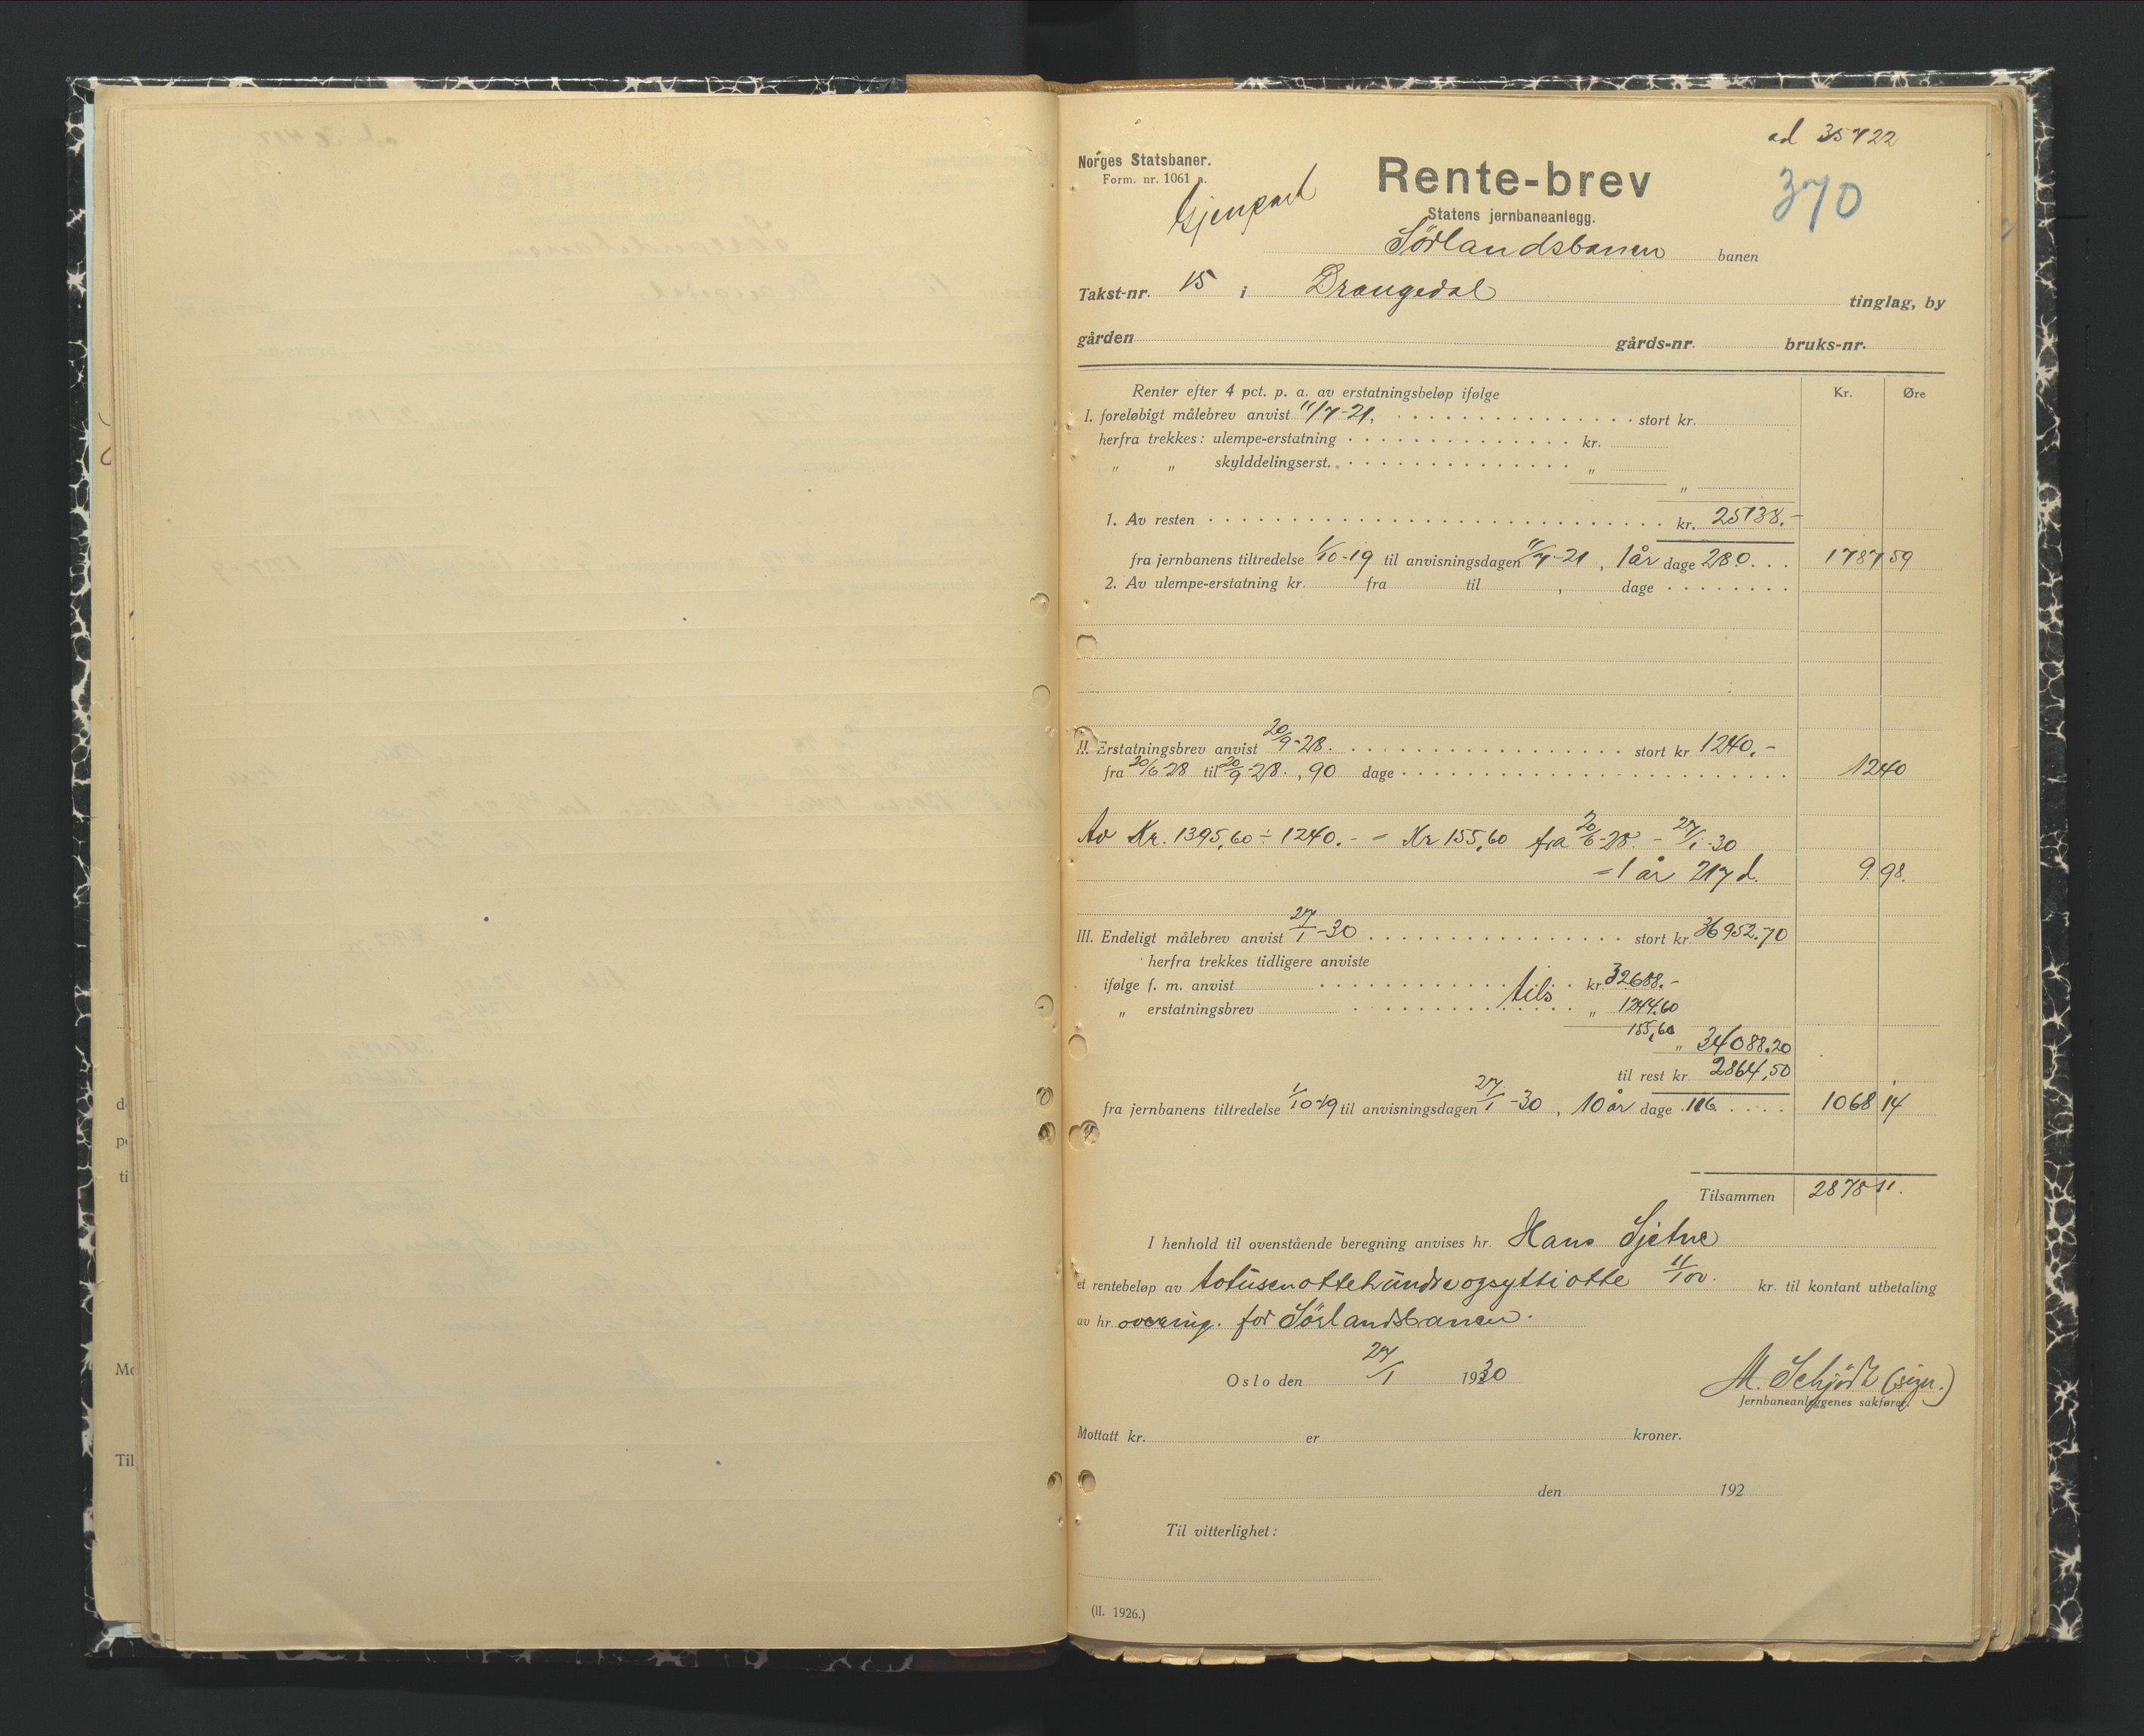 ad 35422
Norges Statsbaner.
Form. nr. 1061 a.
Gjenpart
Rente-brev
370
Statens jernbaneanlegg.
Sørlandsbanen banen
Takst-nr. 15 i Drangedal tinglag, by
gården gårds-nr. bruks-nr.
Renter efter 4 pct. p. a. av erstatningsbeløp ifølge Kr. Øre
I. foreløbigt målebrev anvist 11/7-21. stort kr.
herfra trekkes: ulempe-erstatning kr.
„ „ skylddelingserst. „
„
1. Av resten kr. 25138.-
fra jernbanens tiltredelse 1/10-19 til anvisningsdagen 11/7-21, 1 år dage 280 1787 59
2. Av ulempe-erstatning kr. fra til , dage
II. Erstatningsbrev anvist 20/9-28. stort kr 1240.-
fra 20/6-28 til 20/9-28., 90 dage 12 40
Av Kr. 1395,60 ÷ 1240.- = Kr 155,60 fra 20/6-28. - 27/1-30
= 1 år 217 d. 9.98.
III. Endeligt målebrev anvist 27/1-30 stort kr. 36952.70
herfra trekkes tidligere anviste
ifølge f. m. anvist tils kr 32688.-
„ erstatningsbrev „ 1244.60
155,60
„ 34088.20
til rest kr. 2864,50
fra jernbanens tiltredelse 1/10-19 til anvisningsdagen 27/1-30, 10 år dage 116 1068 14
Tilsammen 2878 11.
I henhold til ovenstående beregning anvises hr. Hans Gjetne
et rentebeløp av totusenottehundreogsyttiotte 11/100. kr. til kontant utbetaling
av hr. overing. for Sørlandsbanen.
Oslo den 27/1 1930
M. Schjødt (sign.)
Jernbaneanleggenes sakfører.
Mottatt kr. er kroner.
den 192
Til vitterlighet:
(II. 1926.)